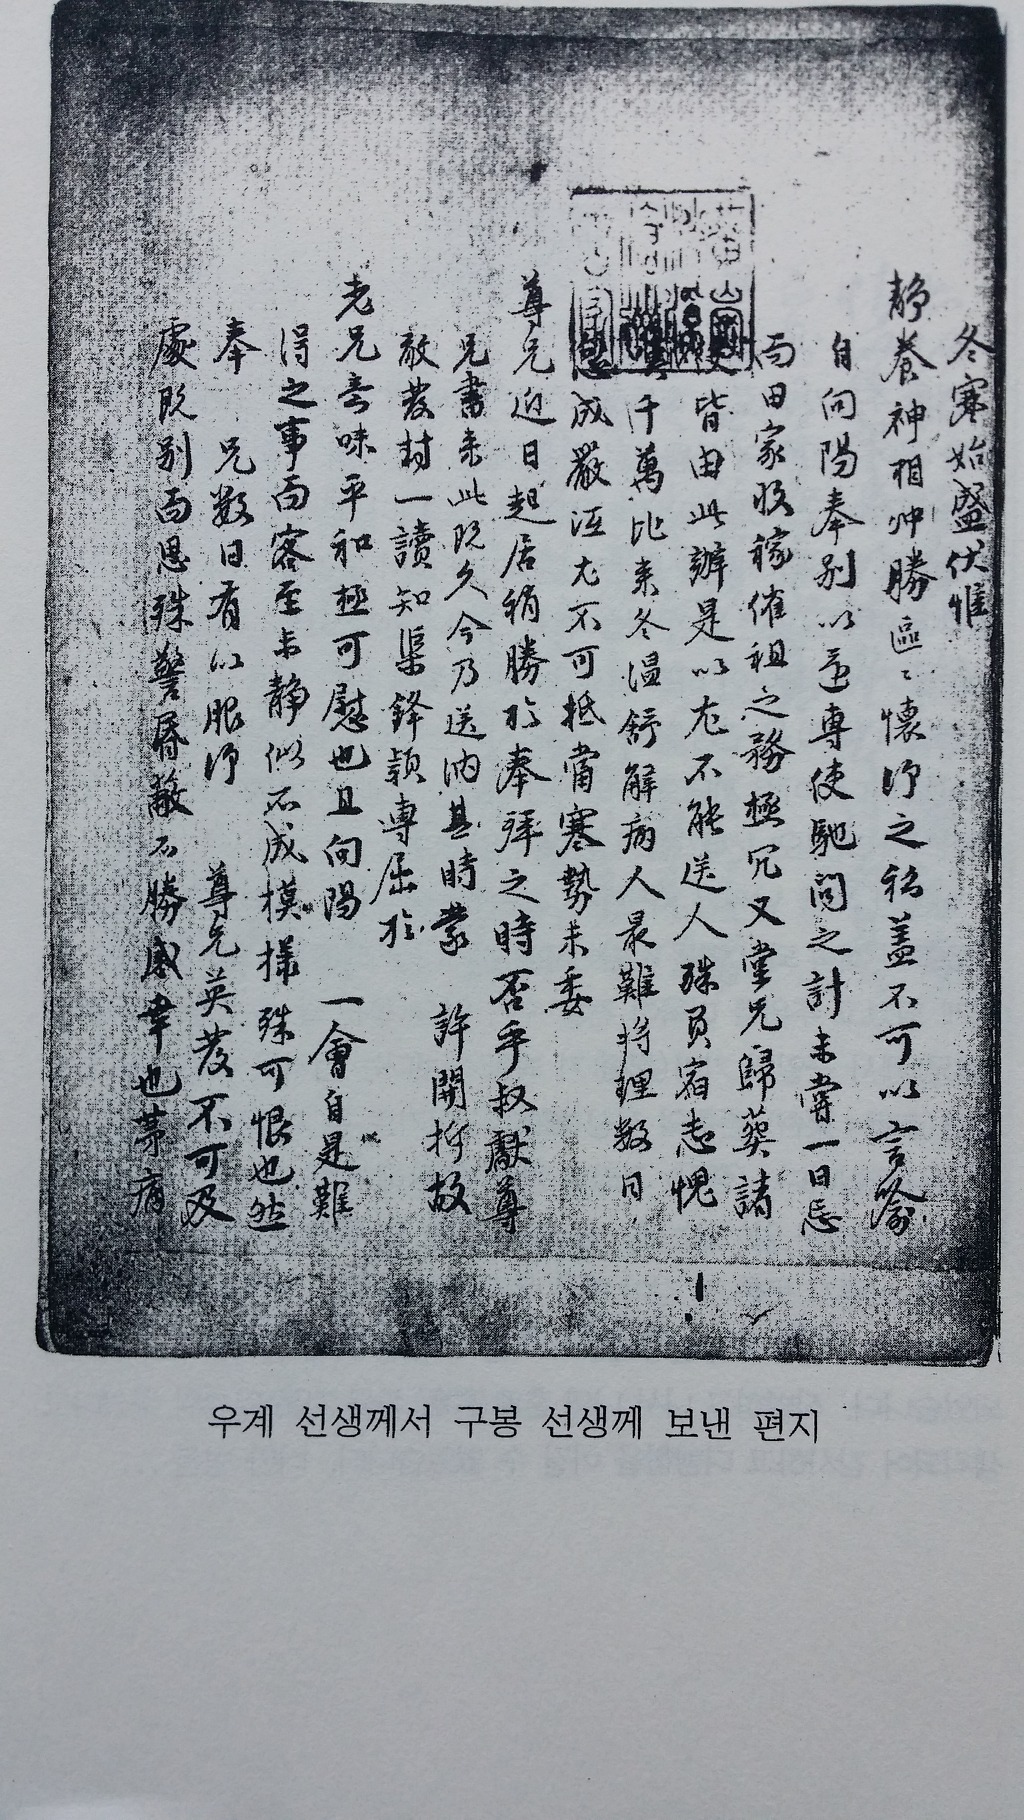 冬寒始盛伏惟
靜養神相冲勝區〻懷仰之私蓋不可以言喩
自向陽奉別以還專使馳問之計未嘗一日忘
而田家收稼催租之務極冗又堂兄歸葬諸
皆由此辦是以尤不能送人殊負宿志愧
千萬比來冬溫舒解病人最難將理數日
成嚴沍尤不可抵當寒勢未委
尊兄近日起居稍勝於奉拜之時否乎叔獻尊
兄書來此既久今乃送納其時蒙 許開拆故
敢發封一讀知渠鋒穎專屈於
老兄音味平和極可慰也且向陽 一會自是難
得之事而客至未靜似不成模樣殊可恨也然
奉 兄數日有以服仰 尊兄英發不可及
處既別而思殊警昏蔽不勝感幸也 病
우계 선생께서 구봉 선생께 보낸 편지